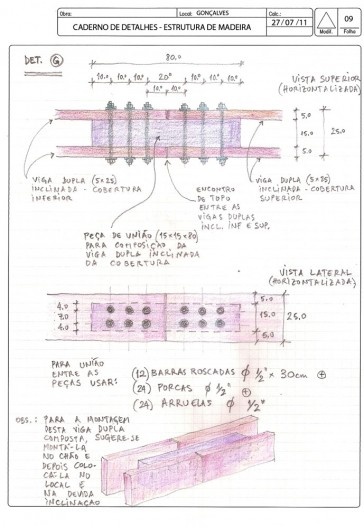 Obra: Local: GONÇALVES Calc.:
CADERNO DE DETALHES - ESTRUTURA DE MADEIRA 27/07/11 Modif. 09 Folha
DET. G
80.0
10.0 10.0 10.0 20.0 10.0 10.0 10.0
10.0 10.0
VISTA SUPERIOR
(HORIZONTALIZADA)
5,0
15,0 25,0
5,0
VIGA DUPLA (5×25)
INCLINADA - COBERTURA
INFERIOR
ENCONTRO
DE TOPO
ENTRE AS
VIGAS DUPLAS
INCL. INF E SUP.
VIGA DUPLA (5×25)
INCLINADA - COBERTURA
SUPERIOR
PEÇA DE UNIÃO (15×15×80)
PARA COMPOSIÇÃO DA
VIGA DUPLA INCLINADA
DA COBERTURA
VISTA LATERAL
(HORIZONTALIZADA)
4.0
7.0
4.0
5.0
15.0 25.0
5.0
PARA UNIÃO
ENTRE AS
PEÇAS USAR:
(12) BARRAS ROSCADAS ϕ 1/2" × 30cm
(24) PORCAS ϕ 1/2"
(24) ARRUELAS ϕ 1/2"
OBS.: PARA A MONTAGEM
DESTA VIGA DUPLA
COMPOSTA, SUGERE-SE
MONTÁ-LA
NO CHÃO E
DEPOIS COLO-
CÁ-LA NO
LOCAL E
NA DEVIDA
INCLINAÇÃO